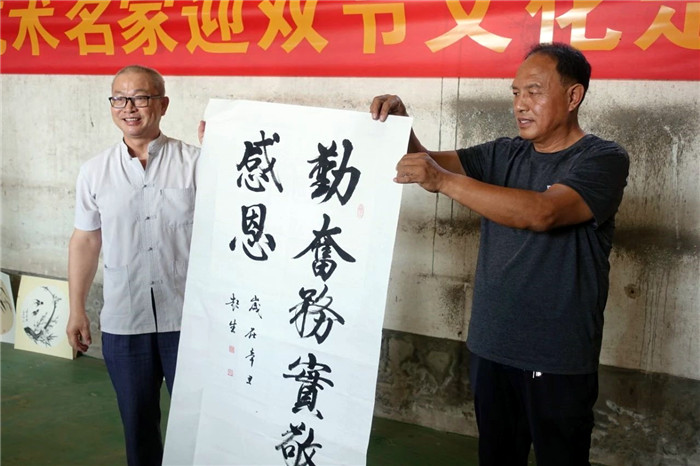 术名家迎双节文化走
勤奮務實敬
感恩
歲在辛丑